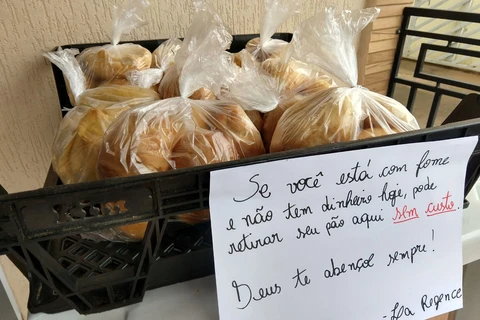 Se você está com fome
e não tem dinheiro hoje, pode
retirar seu pão aqui sem custo.
Deus te abençol sempre!
-La Regence